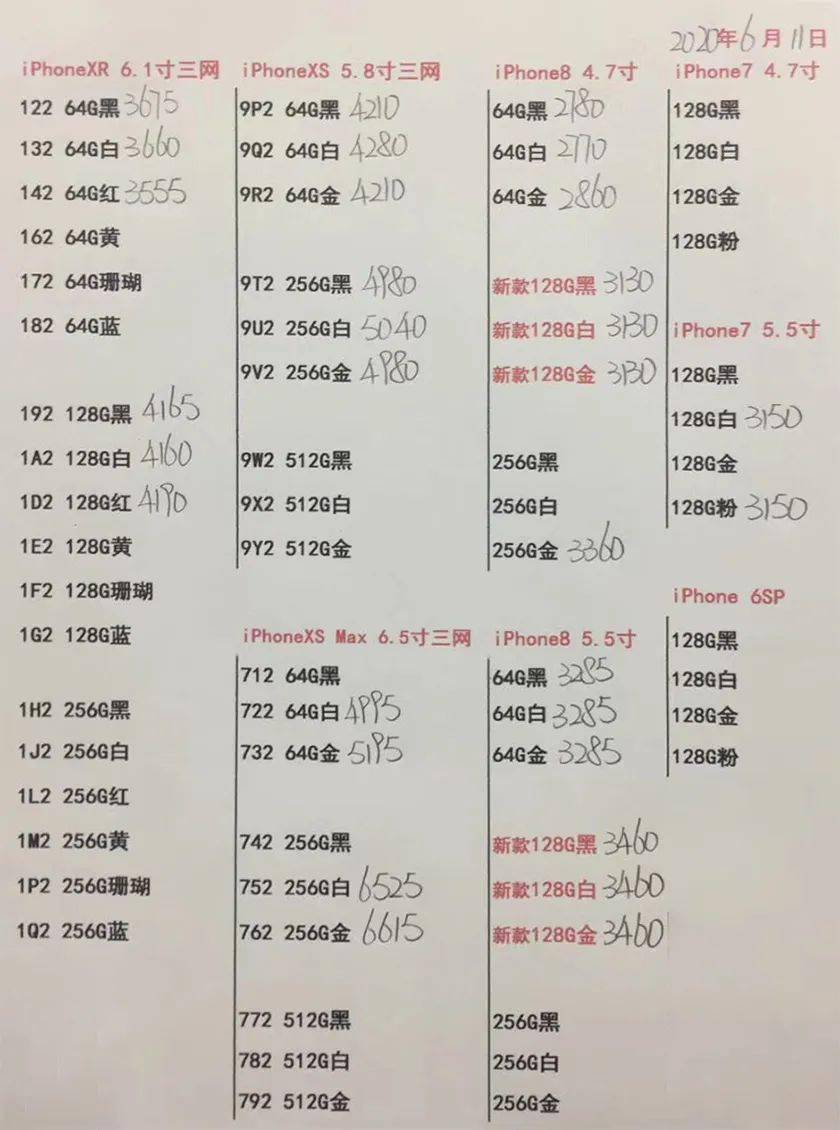 2020年6月11日
iPhoneXR 6.1寸三网
122 64G黑 3675
132 64G白 3660
142 64G红 3555
162 64G黄
172 64G珊瑚
182 64G蓝
192 128G黑 4165
1A2 128G白 4160
1D2 128G红 4190
1E2 128G黄
1F2 128G珊瑚
1G2 128G蓝
1H2 256G黑
1J2 256G白
1L2 256G红
1M2 256G黄
1P2 256G珊瑚
1Q2 256G蓝
iPhoneXS 5.8寸三网
9P2 64G黑 4210
9Q2 64G白 4280
9R2 64G金 4210
9T2 256G黑 4980
9U2 256G白 5040
9V2 256G金 4980
9W2 512G黑
9X2 512G白
9Y2 512G金
iPhoneXS Max 6.5寸三网
712 64G黑
722 64G白 4995
732 64G金 5195
742 256G黑
752 256G白 6525
762 256G金 6615
772 512G黑
782 512G白
792 512G金
iPhone8 4.7寸
64G黑 2780
64G白 2770
64G金 2860
新款128G黑 3130
新款128G白 3130
新款128G金 3130
256G黑
256G白
256G金 3360
iPhone8 5.5寸
64G黑 3285
64G白 3285
64G金 3285
新款128G黑 3460
新款128G白 3460
新款128G金 3460
256G黑
256G白
256G金
iPhone7 4.7寸
128G黑
128G白
128G金
128G粉
iPhone7 5.5寸
128G黑
128G白 3150
128G金
128G粉 3150
iPhone 6SP
128G黑
128G白
128G金
128G粉